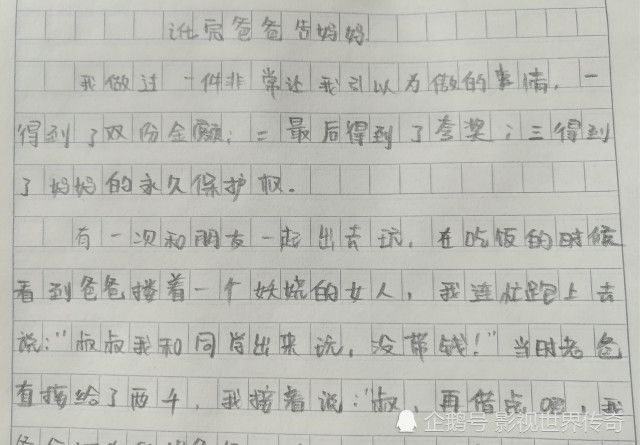 讹完爸爸告妈妈
我做过一件非常让我引以为傲的事情，一
得到了双份金额；二最后得到了套奖；三得到
了妈妈的永久保护权。
有一次和朋友一起出去玩，在吃饭的时候
看到爸爸搂着一个妖娆的女人，我连忙跑上去
说："叔叔我和同学出来玩，没带钱！"当时老爸
直接给了两千，我接着说："叔，再借点吧，我
企鹅号 影视世界传奇